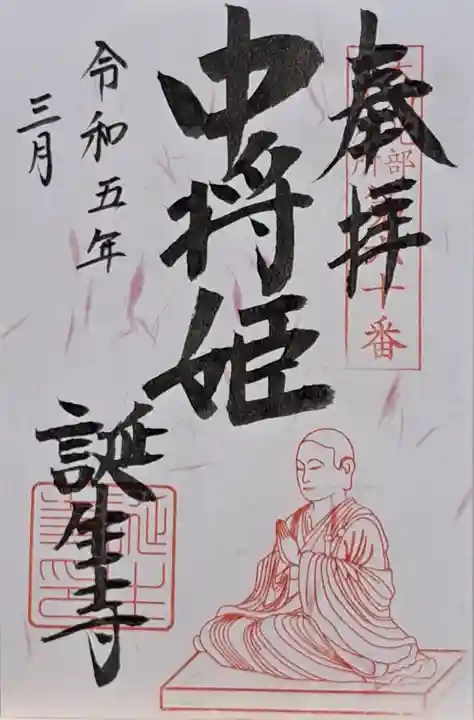 奉拝
十番
中将姫
誕生寺
令和五年
三月